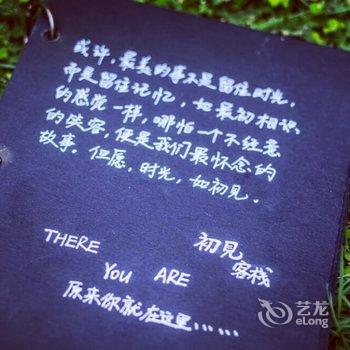 或许，最美的事不是留住时光，
而是留住记忆，如最初相识
的感觉一样，哪怕一个不经意
的笑容，便是我们最怀念的
故事。但愿，时光，如初见。
THERE 初見
YOU ARE 客栈
原来你就在这里……
艺龙
eLong